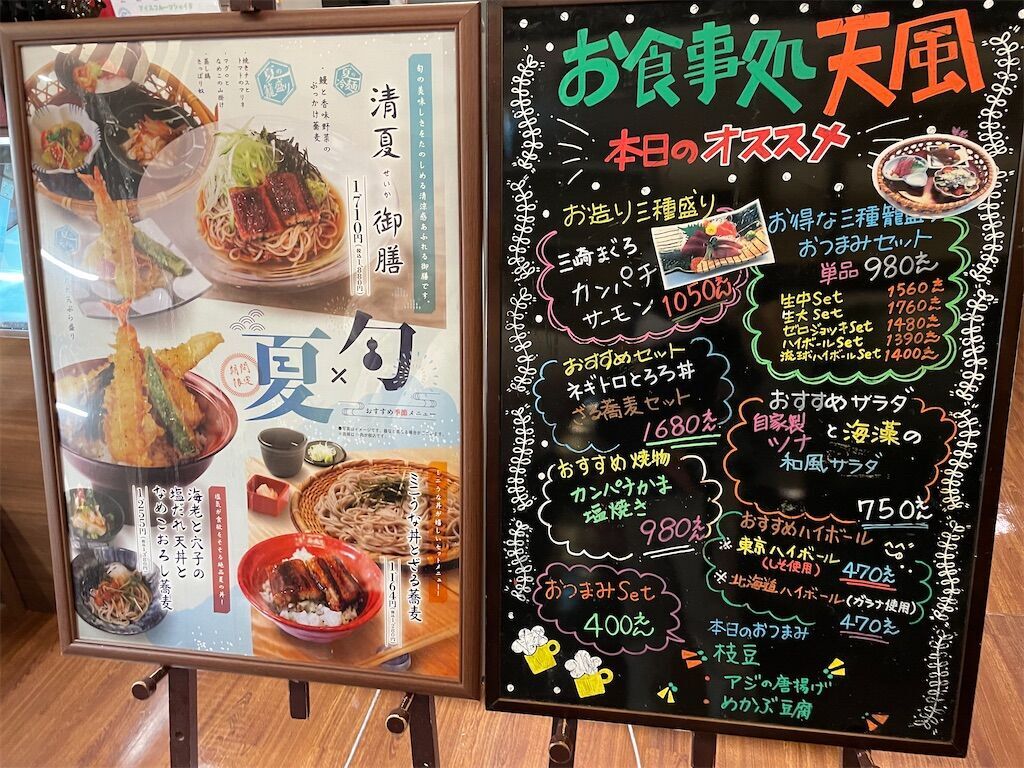 旬の美味しさをたのしめる清涼感あふれる御膳です。
清夏 御膳
せいか
1710円(税込1,880円)
夏の冷麺
・鰻と香味野菜の
ぶっかけ蕎麦
夏の籠盛り
・焼きナスと
トマトのマリネ
・マグロと
なめこの山掛け
・蒸し鶏
さっぱり奴
期間限定
夏×旬
おすすめ季節メニュー
塩気が食欲をそそる絶品夏の丼!
海老と穴子の
塩だれ天丼と
なめこおろし蕎麦
1255円
ミニうな丼とざる蕎麦
1164円
お食事処 天風
本日のオススメ
お造り三種盛り
三崎まぐろ
カンパチ
サーモン 1050えん
お得な三種籠盛り
おつまみセット
単品 980えん
生中Set 1560えん
生大Set 1760えん
ゼロジョッキSet 1480えん
ハイボールSet 1390えん
琉球ハイボールSet 1400えん
おすすめセット
ネギトロとろろ丼
ざる蕎麦セット
1680えん
おすすめサラダ
自家製
ツナ
と海藻の
和風サラダ
750えん
おすすめ焼物
カンパチかま
塩焼き
980えん
おすすめハイボール
※東京ハイボール
(しそ使用) 470えん
※北海道ハイボール(ガラナ使用)
470えん
おつまみSet
400えん
本日のおつまみ
・枝豆
・アジの唐揚げ
・めかぶ豆腐